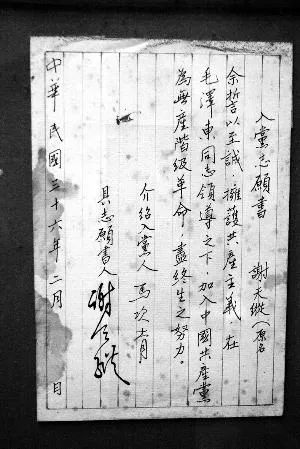 入黨志願書　謝天縱（原名
余誓以至誠．擁護共產主義．在
毛澤東同志領導之下．加入中國共產黨
為無產階級革命．盡終生之努力。
介紹入黨人　馬次
具志願書人　謝天縱
中華民國三十六年二月　日